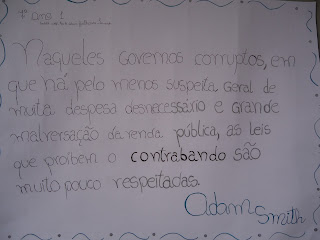 Naqueles governos corruptos, em
que há pelo menos suspeita geral de
muita despesa desnecessário e grande
malversação da renda pública, as leis
que proibem o contrabando são
muito pouco respeitadas.
Adam Smith